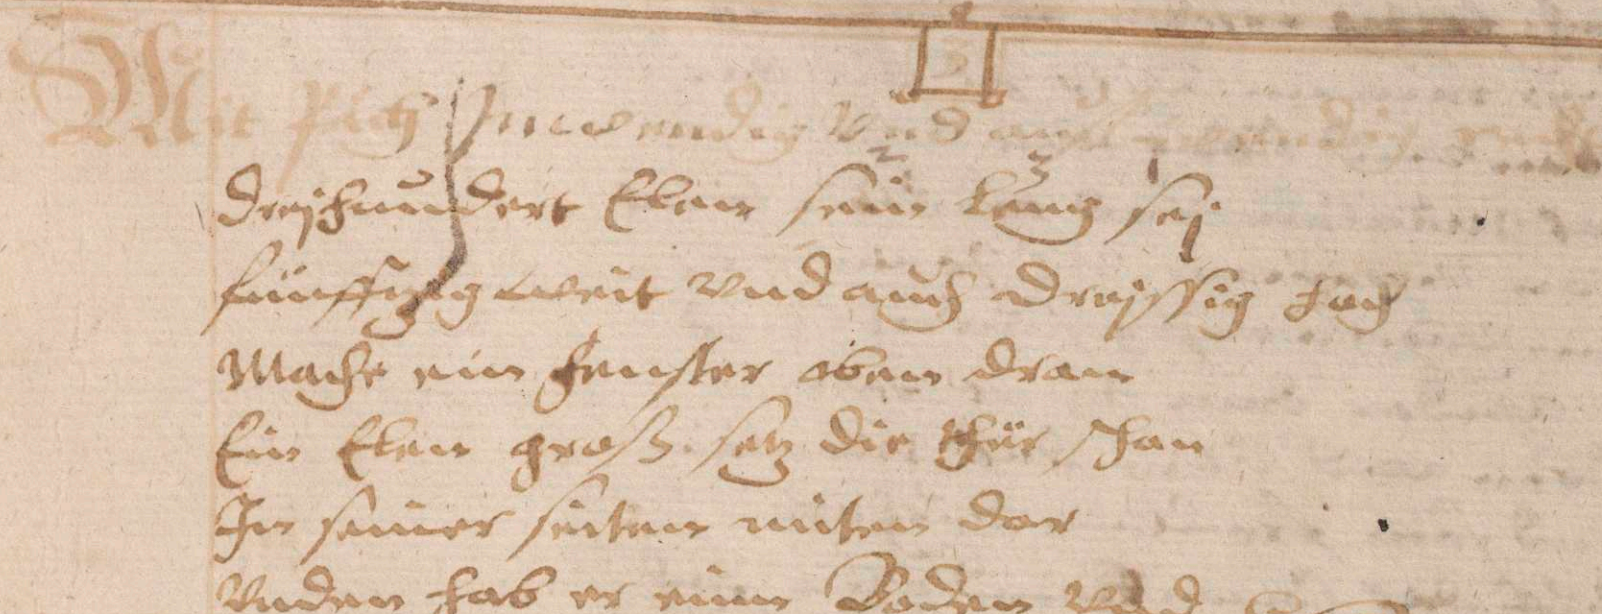 3
Mit Pech Inwendig vnd auß wendig
dreÿhundert Elen sein Leng seÿ
fünffzig weit vnd auch dreÿssig hoch
Mache ein fenster oben dran
Ein Elen groß setz die thür schon
In seiner seiten miten dar
Vnden hab er einen Boden vnd